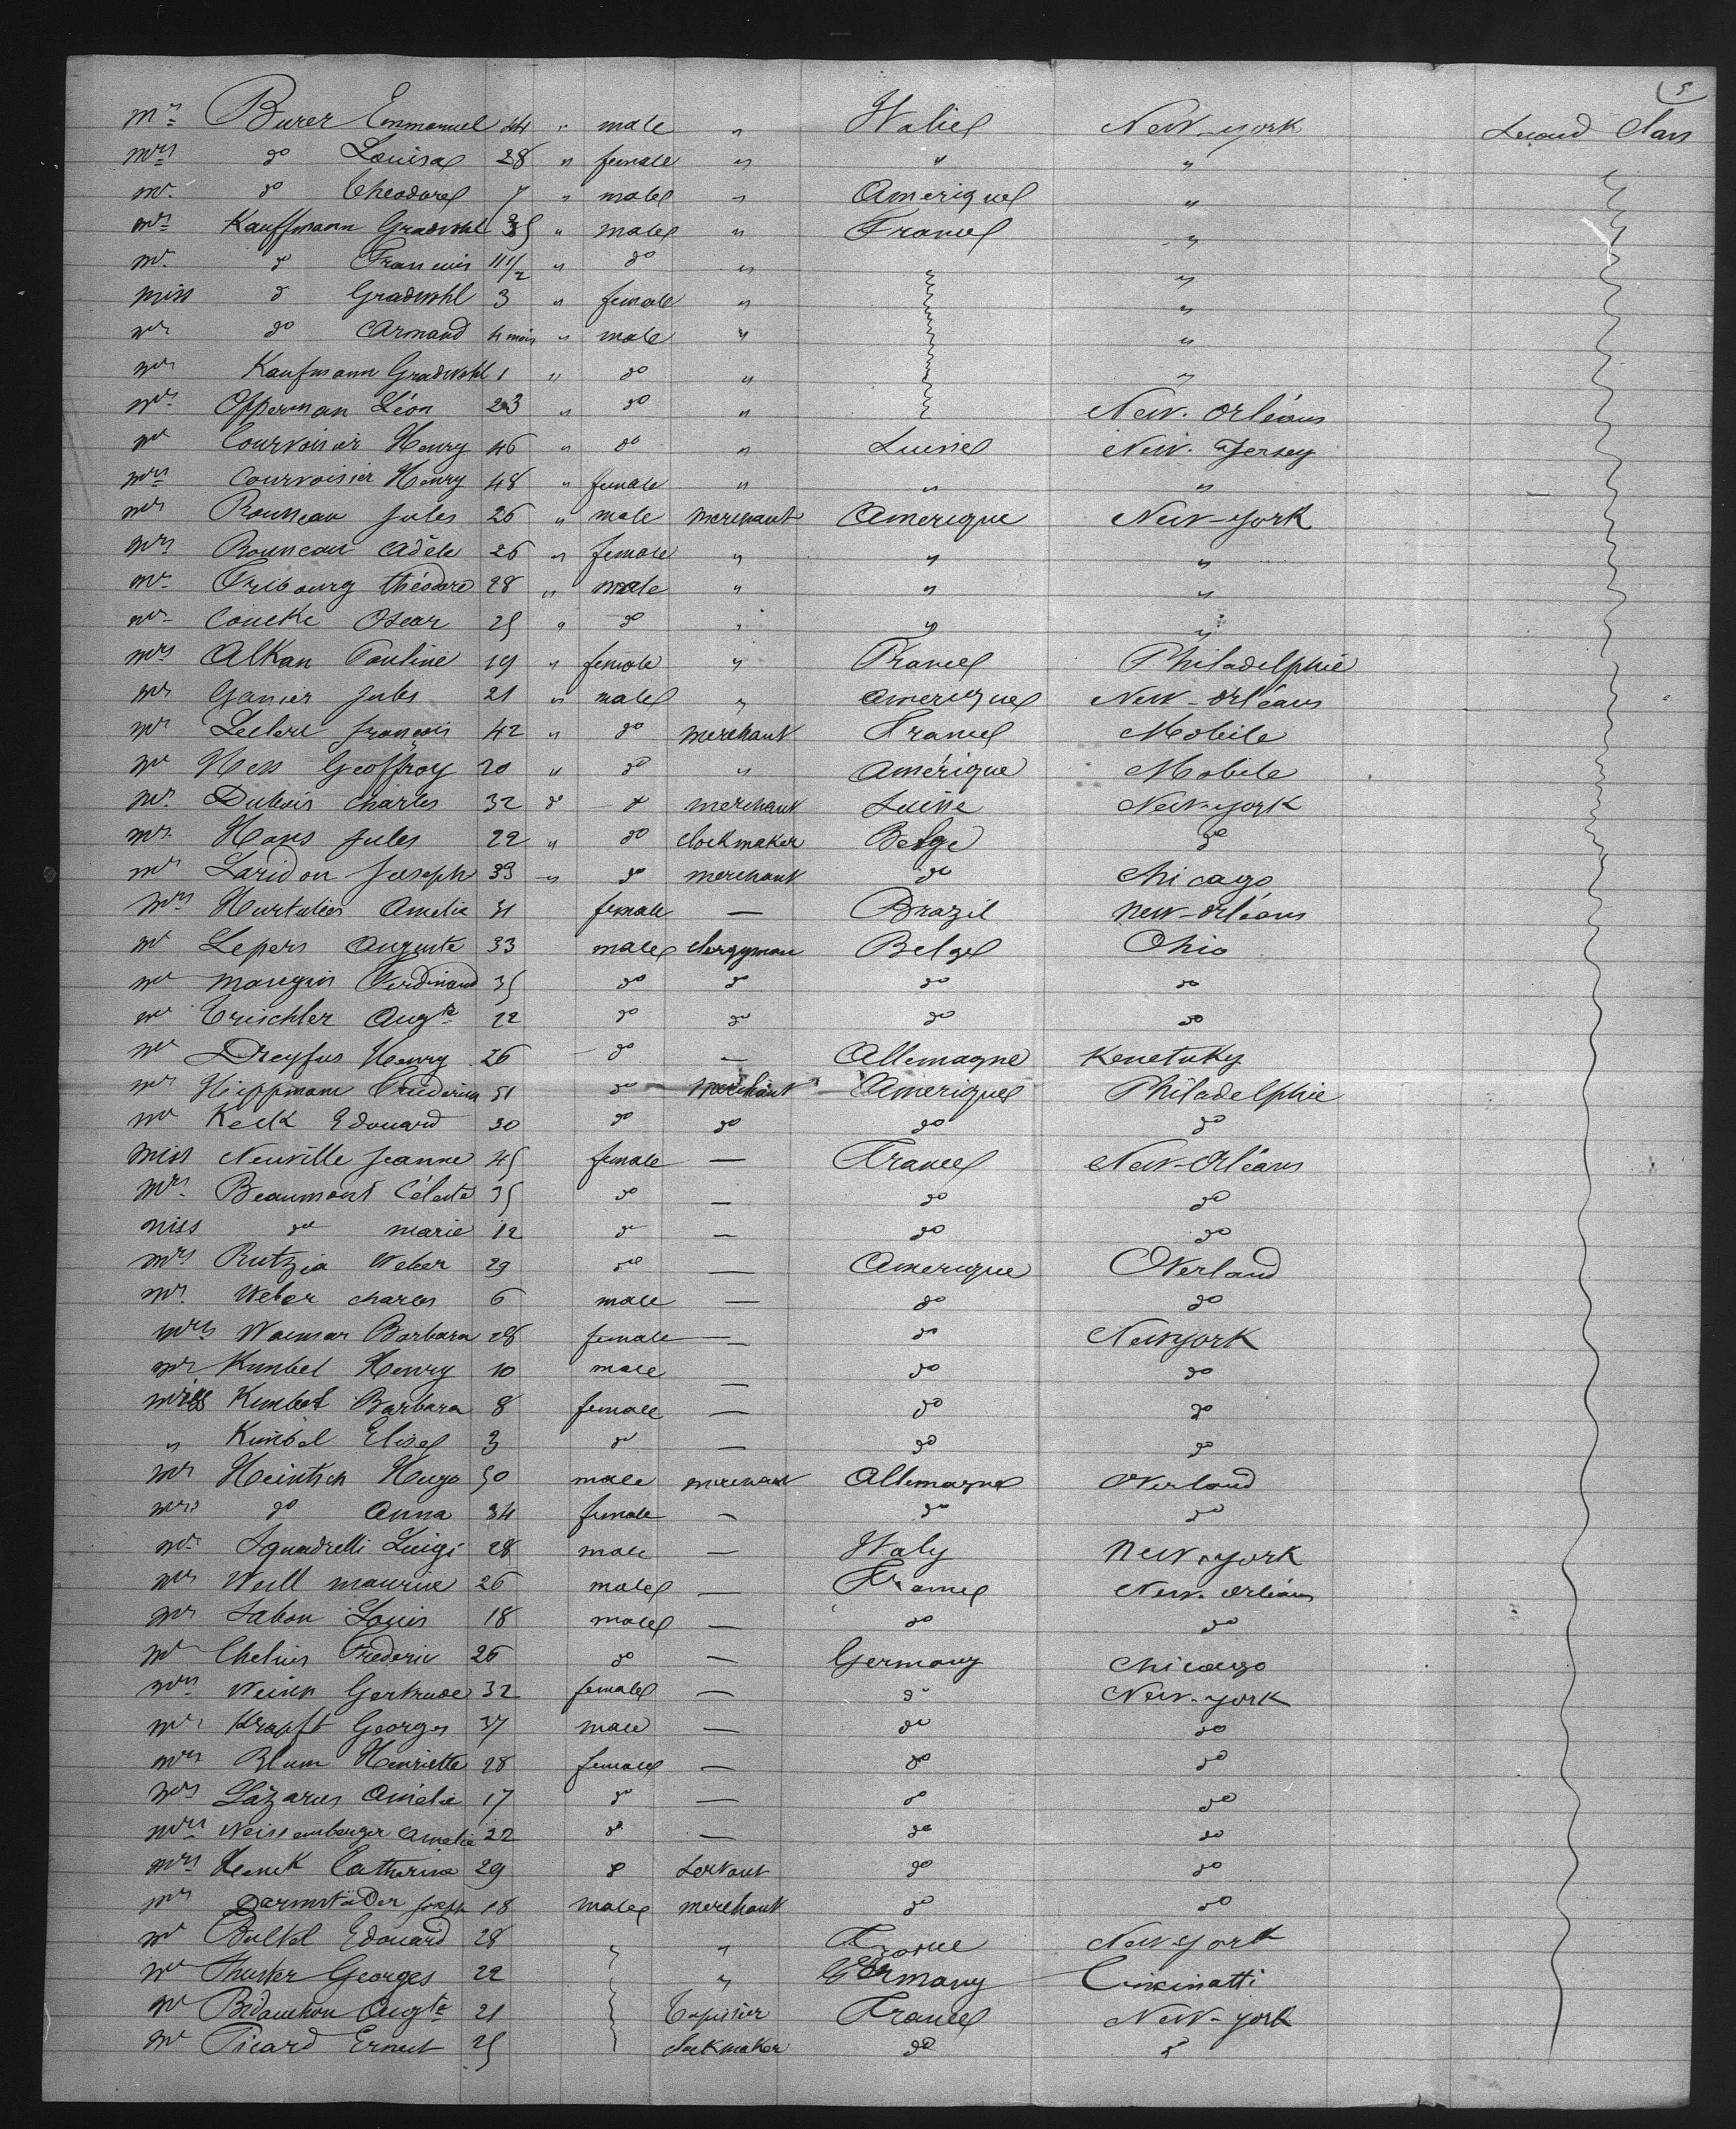 5
Mr Burer Emmanuel 44 " male " Italie New-york Second Class
Mrs do Louise 28 " female " " "
Mr. do Theodore 7 " male " Amerique "
Mr Kauffmann Gradwohl 35 " male " France "
Mr. do Francois 11 1/2 " do " "
Miss do Gradwohl 3 " female " "
Mr do Armand 4 mois " male " "
Mr Kaufmann Gradwohl 1 " do " "
Mr. Opperman Léon 23 " do " New. Orléans
Mr Courvoisier Henry 46 " do " Suisse New. Jersey
Mrs Courvoisier Henry 48 " female " " "
Mr Rousseau Jules 26 " male merchant Amerique New-York
Mrs Rousseau Adèle 26 " female " " "
Mr. Fribourg théodore 28 " male " " "
Mr Coucke Oscar 25 " do " " "
Mrs Alkan Pauline 19 " female " France Philadelphie
Mr Ganier Jules 21 " male " Amerique New-Orléans
Mr Leclerc françois 42 " do merchant France Mobile
Mr Hess Geoffroy 20 " do " Amérique Mobile
Mr. Dubois Charles 32 do do merchant Suisse New-york
Mr. Hans Jules 22 " do clockmaker Belge do
Mr Laridon Joseph 33 " do merchant do Chicago
Mrs Hurtulies Amelie 31 female — Brazil New-Orléans
Mr Lepers Auguste 33 male clergyman Belge Ohio
Mr Mangin Ferdinand 35 do do do do
Mr Trischler Augte 22 do do do do
Mr Dreyfus Henry 26 do — Allemagne Kenetuky
Mr Hippmann Frederich 51 do merchant Amerique Philadelphie
Mr Keck Edouard 30 do do do do
Miss Neuville Jeanne 45 female — France New-Orléans
Mrs. Beaumont Céleste 35 do — do do
Miss do Marie 12 do — do do
Mrs Rutzia Weber 29 do — Amerique Overland
Mr. Weber Charles 6 male — do do
Mrs Waemar Barbara 28 female — do Newyork
Mr Kimbel Henry 10 male — do do
Miss Kimbel Barbara 8 female — do do
" Kimbel Elise 3 do — do do
Mr Heintsch Hugo 50 male merchant Allemagne Overland
Mrs do Anna 34 female — do do
Mr Squadrelli Luigi 28 male — Italy New-york
Mr Weill Maurice 26 male — France New. Orléans
Mr Sabon Louis 18 male — do do
Mr Chelius Frederic 26 do — Germany Chicago
Mrs Gertrude 32 female — do New-york
Mr Krapft Georges 37 male — do do
Mrs Blum Henriette 28 female — do do
Mrs Lazarus Amélie 17 do — do do
Mrs Weissemberger Amelie 22 do — do do
Mrs Henck Catherine 29 do servant do do
Mr Darmstäder Joseph 18 male merchant do do
Mr Bultel Edouard 28 " France Newyork
Mr Thuster Georges 22 " Germany Cincinatti
Mr Augte 21 Tapissier France New-york
Mr Picard Ernest 25 clockmaker do "